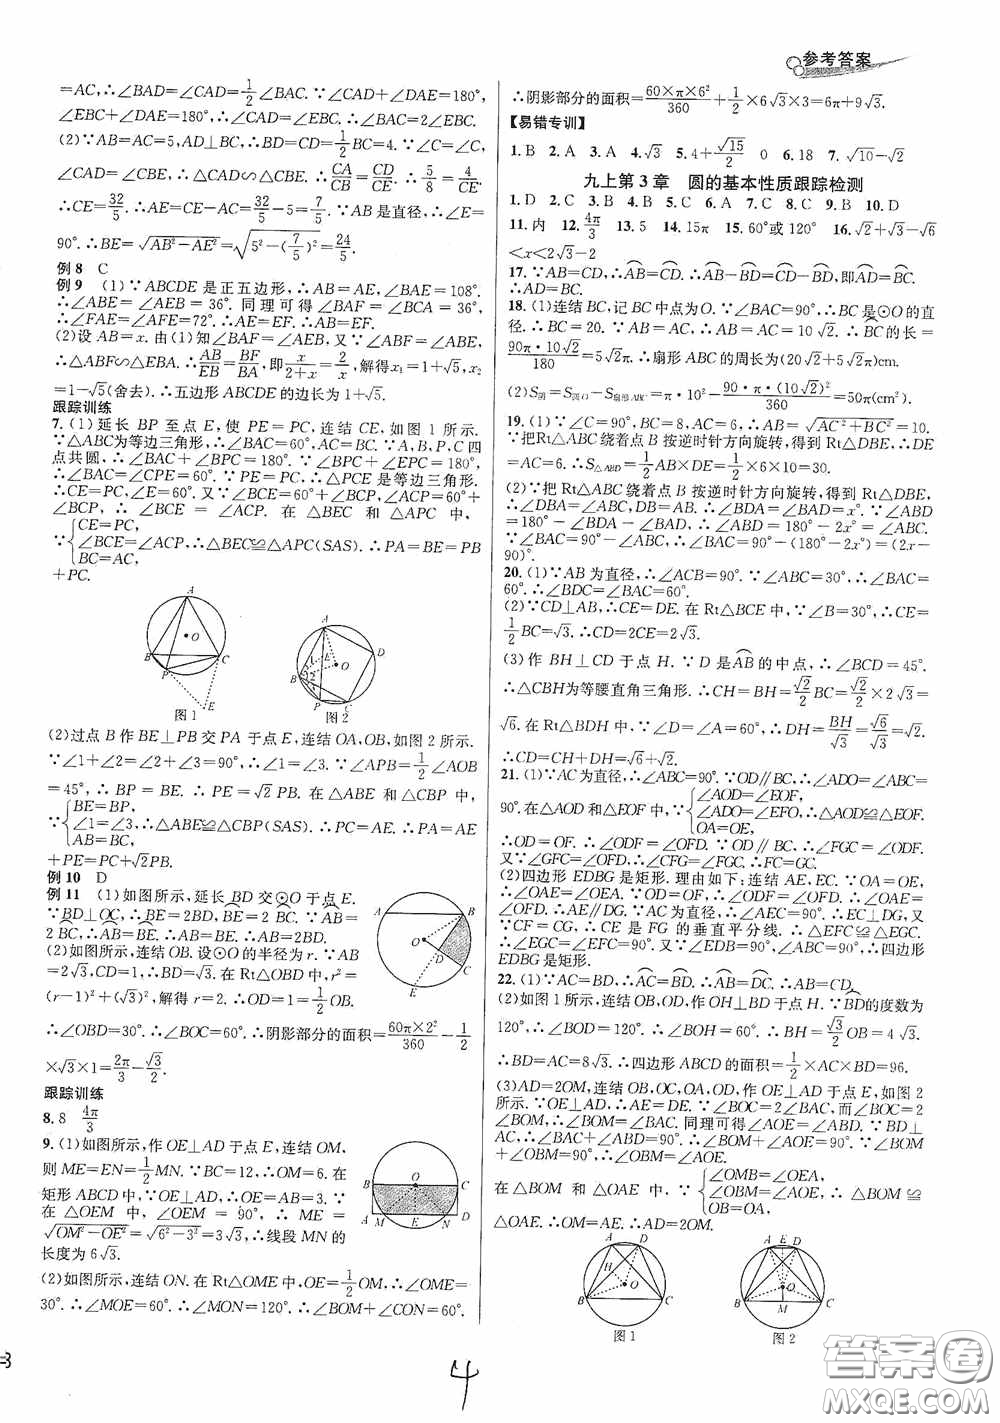 参考答案
=AC,∴∠BAD=∠CAD=1/2∠BAC.∵∠CAE+∠DAE=180°,
∠EBC+∠DAE=180°,∴∠CAD=∠EBC.∴∠BAC=2∠EBC.
(2)∵AB=AC=5,AD⊥BC,∴BD=CD=1/2BC=4.∵∠C=∠C,
∠CAD=∠EBC,∴△CAD∽△CBE.∴CA/CB=CD/CE.∴5/8=4/CE.
∴CE=32/5.∴AE=CE−AC=32/5−5=7/5.∵AB是直径,∴∠E=
90°.∴BE=√(AB²−AE²)=√(5²−(7/5)²)=24/5.
例8 C
例9 (1)∵ABCDE是正五边形,∴AB=AE,∠BAE=108°.
∴∠ABE=∠AEB=36°.同理可得∠BAF=∠BCA=36°.
∴∠FAE=∠AFE=72°.∴AE=EF.∴AB=EF.
(2)设AB=x.由(1)知∠BAF=∠AEB,又∵∠ABF=∠ABE,
∴△ABF∽△EBA.∴AB/EB=BF/BA,即x/(2+x)=2/x,解得x₁=1+√5,x₂
=1−√5(舍去).∴五边形ABCDE的边长为1+√5.
跟踪训练
7.(1)延长BP至点E,使PE=PC,连结CE,如图1所示.
∵△ABC为等边三角形,∴∠BAC=60°,AC=BC.∵A,B,P,C四
点共圆,∴∠BAC+∠BPC=180°.∵∠BPC+∠EPC=180°,
∴∠BAC=∠CPE=60°.∵PE=PC,∴△PCE是等边三角形.
∴CE=PC,∠E=60°.又∵∠BCE=60°+∠BCP,∠ACP=60°+
∠BCP,∴∠BCE=∠ACP.在△BEC和△APC中,
∵{CE=PC,∠BCE=∠ACP,BC=AC,∴△BEC≌△APC(SAS).∴PA=BE=PB
+PC.
图1 图2
(2)过点B作BE⊥PB交PA于点E,连结OA,OB,如图2所示.
∵∠1+∠2=∠2+∠3=90°,∴∠1=∠3.∵∠APB=1/2∠AOB
=45°,∴BP=BE.∴PE=√2PB.在△ABE和△CBP中,
∵{BE=BP,∠1=∠3,AB=BC,∴△ABE≌△CBP(SAS).∴PC=AE.∴PA=AE
+PE=PC+√2PB.
例10 D
例11 (1)如图所示,延长BD交⊙O于点E.
∵BD⊥OC,∴BE=2BD,BE=2BC.∵AB=
2BC,∴AB=BE.∴AB=BE.∴AB=2BD.
(2)如图所示,连结OB.设⊙O的半径为r.∵AB
=2√3,CD=1,∴BD=√3.在Rt△OBD中,r²=
(r−1)²+(√3)²,解得r=2.∴OD=1=1/2OB.
∴∠OBD=30°.∴∠BOC=60°.∴阴影部分的面积=60π×2²/360−1/2
×√3×1=2π/3−√3/2.
跟踪训练
8.8 4π/3
9.(1)如图所示,作OE⊥AD于点E,连结OM,
则ME=EN=1/2MN.∵BC=12,∴OM=6.在
矩形ABCD中,∵OE⊥AD,∴OE=AB=3.∵
在△OEM中,∠OEM=90°,∴ME=
√(OM²−OE²)=√(6²−3²)=3√3,∴线段MN的
长度为6√3.
(2)如图所示,连结ON.在Rt△OME中,OE=1/2OM,∴∠OME=
30°.∴∠MOE=60°.∴∠MON=120°.∴∠BOM+∠CON=60°.
∴阴影部分的面积=60×π×6²/360+1/2×6√3×3=6π+9√3.
【易错专训】
1.B 2.A 3.A 4.√3 5.4+√15/2 0 6.18 7.√10−√2
九上第3章 圆的基本性质跟踪检测
1.D 2.C 3.B 4.B 5.C 6.A 7.C 8.C 9.B 10.D
11.内 12.4π/3 13.5 14.15π 15.60°或120° 16.√2+√3−√6
<x<2√3−2
17.∵AB=CD,∴AB=CD.∴AB−BD=CD−BD,即AD=BC.
∴AD=BC.
18.(1)连结BC,记BC中点为O.∵∠BAC=90°,∴BC是⊙O的直
径.∴BC=20.∵AB=AC,∴AB=AC=10√2.∴BC的长=
90π·10√2/180=5√2π.∴扇形ABC的周长为(20√2+5√2π)cm.
(2)S阴=S圆O−S扇形ABC=π·10²−90·π·(10√2)²/360=50π(cm²).
19.(1)∵∠C=90°,BC=8,AC=6,∴AB=√(AC²+BC²)=10.
∵把Rt△ABC绕着点B按逆时针方向旋转,得到Rt△DBE,∴DE
=AC=6.∴S△ABD=1/2AB×DE=1/2×6×10=30.
(2)∵把Rt△ABC绕着点B按逆时针方向旋转,得到Rt△DBE,
∴∠DBA=∠ABC,DB=AB.∴∠BDA=∠BAD=x°.∵∠ABD
=180°−∠BDA−∠BAD,∴∠ABD=180°−2x°=∠ABC.
∵∠BAC=90°−∠ABC,∴∠BAC=90°−(180°−2x°)=(2x−
90)°.
20.(1)∵AB为直径,∴∠ACB=90°.∵∠ABC=30°,∴∠BAC=
60°.∴∠BDC=∠BAC=60°.
(2)∵CD⊥AB,∴CE=DE.在Rt△BCE中,∵∠B=30°,∴CE=
1/2BC=√3.∴CD=2CE=2√3.
(3)作BH⊥CD于点H.∵D是AB的中点,∴∠BCD=45°.
∴△CBH为等腰直角三角形.∴CH=BH=√2/2BC=√2/2×2√3=
√6.在Rt△BDH中,∵∠D=∠A=60°,∴DH=BH/√3=√6/√3=√2.
∴CD=CH+DH=√6+√2.
21.(1)∵AC为直径,∴∠ABC=90°.∵OD∥BC,∴∠ADO=∠ABC=
90°.在△AOD和△EOF中,∵{∠AOD=∠EOF,∠ADO=∠EFO,OA=OE,∴△AOD≌△EOF(AAS).
∴OD=OF.∴∠ODF=∠OFD.∵OD∥BC,∴∠FGC=∠ODF.
又∵∠GFC=∠OFD,∴∠CFG=∠FGC.∴FC=GC.
(2)四边形EDBG是矩形.理由如下:连结AE,EC.∵OA=OE,
∴∠OAE=∠OEA.∵OD=OF,∴∠ODF=∠OFD.∵∠AOE=
∠DOF,∴∠OAE=∠OFD.∵AC为直径,∴∠AEC=90°,∴EC⊥DG,又
∵CF=CG,∴CE是FG的垂直平分线.∴△EGC.
∴∠EGC=∠EFC=90°.又∵∠EDB=90°,∠ABC=90°,∴四边形
EDBG是矩形.
22.(1)∵AC=BD,∴AC=BD.∴AB=DC,∴AB=CD.
(2)如图1所示,连结OB,OD,作OH⊥BD于点H.∵BD的度数为
120°,∴∠BOD=120°.∴∠BOH=60°.∴BH=√3/2OB=4√3.
∴BD=AC=8√3.∴四边形ABCD的面积=1/2×AC×BD=96.
(3)AD=2OM,连结OB,OC,OA,OD,作OE⊥AD于点E,如图2
所示.∵OE⊥AD,∴AE=DE.∵∠BOC=2∠BAC,而∠BOC=
2∠BOM,∴∠BOM=∠BAC.同理可得∠AOE=∠ABD.∵BD⊥
AC,∴∠BAC+∠ABD=90°.∴∠BOM+∠AOE=90°.∵∠BOM
+∠OBM=90°,∴∠OBM=∠AOE.
在△BOM和△OAE中,∵{∠OMB=∠OEA,∠OBM=∠AOE,OB=OA,∴△BOM≌
△OAE.∴OM=AE.∴AD=2OM.
图1 图2
4
答案圈
MXQE.COM